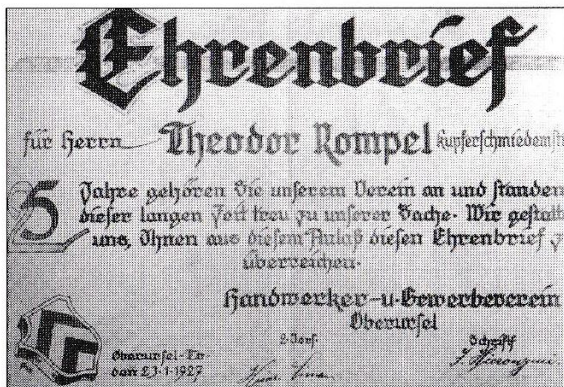 Ehrenbrief
für Herrn Theodor Rompel Kupferschmiedemstr
25 Jahre gehören Sie unserem Verein an und standen
dieser langen Zeit treu zu unserer Sache. Wir gestatt
uns, Ihnen aus diesem Anlaß diesen Ehrenbrief z
überreichen.
Handwerker- u. Gewerbeverein
Oberursel
2. Vors. Schriftf
Oberursel-
den 23.1.1927